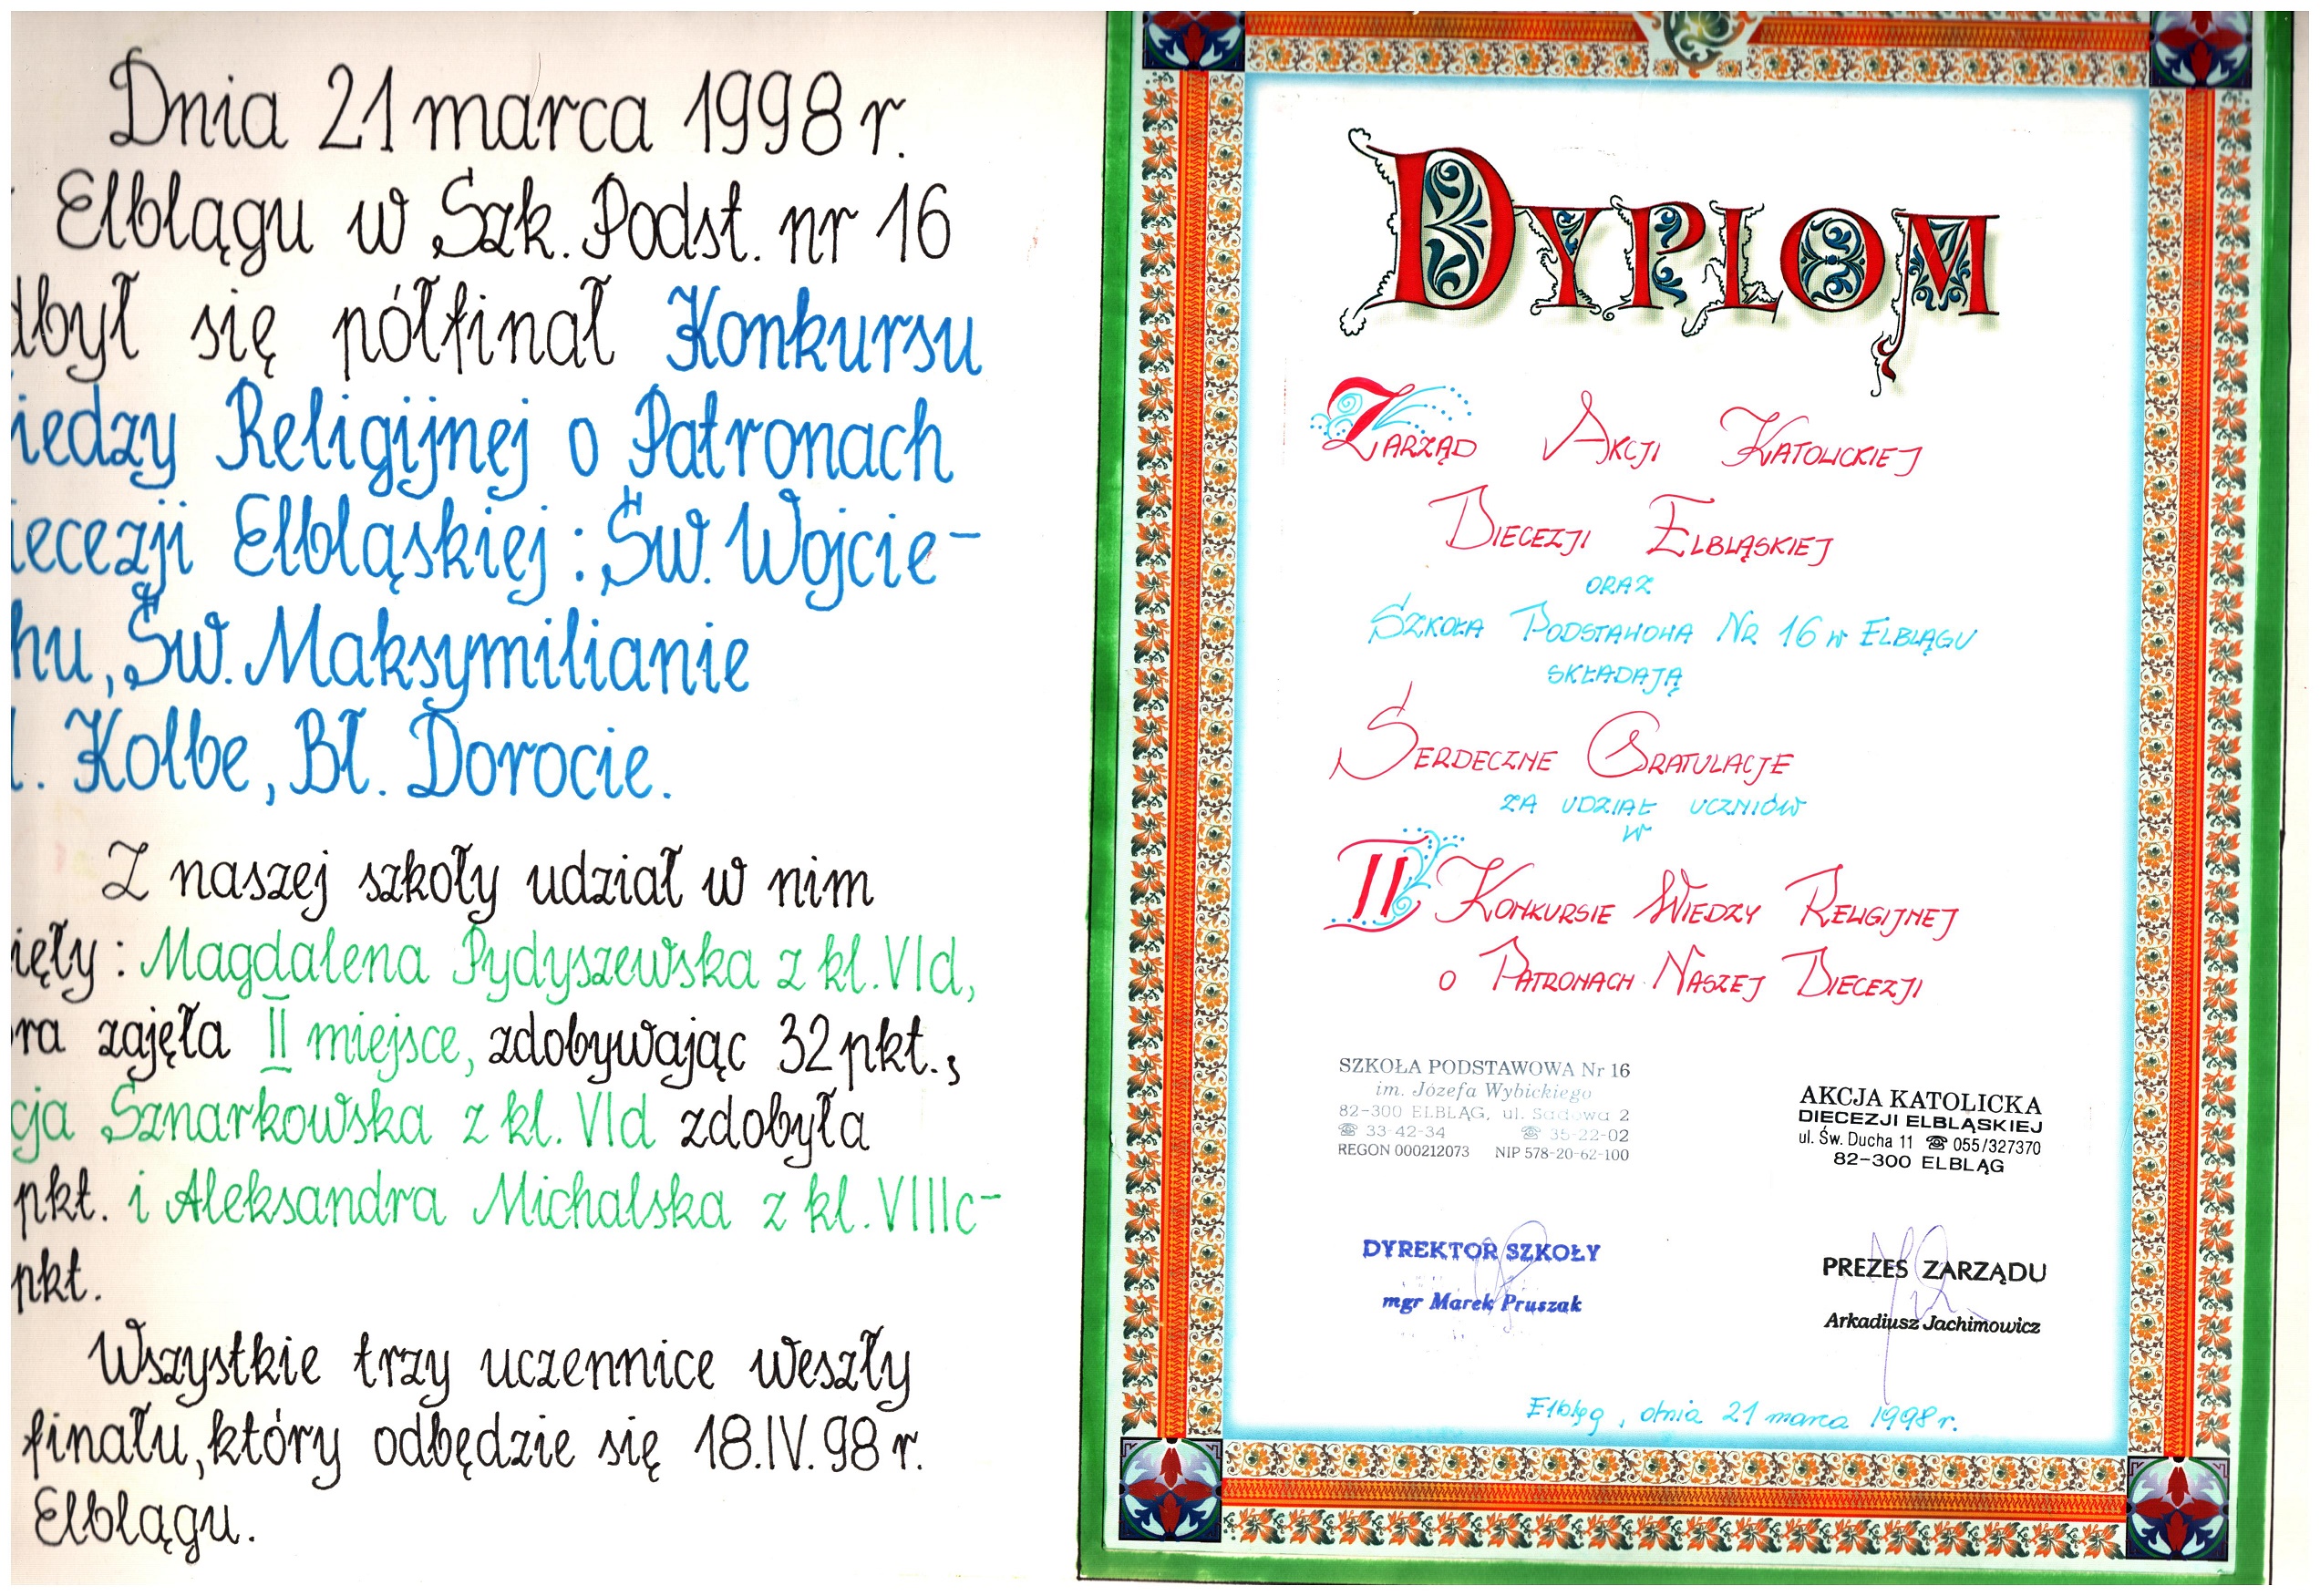 Dnia 21 marca 1998 r.
Elblągu w Szk. Podst. nr 16
dbył się półfinał Konkursu
iedzy Religijnej o Patronach
iecezji Elbląskiej: Św. Wojcie-
hu, Św. Maksymilianie
. Kolbe, Bł. Dorocie.
Z naszej szkoły udział w nim
ięły: Magdalena Pydyszewska z kl. VId,
ra zajęła II miejsce, zdobywając 32 pkt.,
cja Sznarkowska z kl. VId zdobyła
pkt. i Aleksandra Michalska z kl. VIIIc-
pkt.
Wszystkie trzy uczennice weszły
finału, który odbędzie się 18.IV.98 r.
Elblągu.
DYPLOM
ZARZĄD AKCJI KATOLICKIEJ
DIECEZJI ELBLĄSKIEJ
ORAZ
SZKOŁA PODSTAWOWA NR 16 W ELBLĄGU
SKŁADAJĄ
SERDECZNE GRATULACJE
ZA UDZIAŁ UCZNIÓW
W
II KONKURSIE WIEDZY RELIGIJNEJ
O PATRONACH NASZEJ DIECEZJI
SZKOŁA PODSTAWOWA Nr 16
im. Józefa Wybickiego
82-300 ELBLĄG, ul. Sadowa 2
☎ 33-42-34 ☎ 35-22-02
REGON 000212073 NIP 578-20-62-100
AKCJA KATOLICKA
DIECEZJI ELBLĄSKIEJ
ul. Św. Ducha 11 ☎ 055/327370
82-300 ELBLĄG
DYREKTOR SZKOŁY
mgr Marek Pruszak
PREZES ZARZĄDU
Arkadiusz Jachimowicz
Elbląg, dnia 21 marca 1998 r.